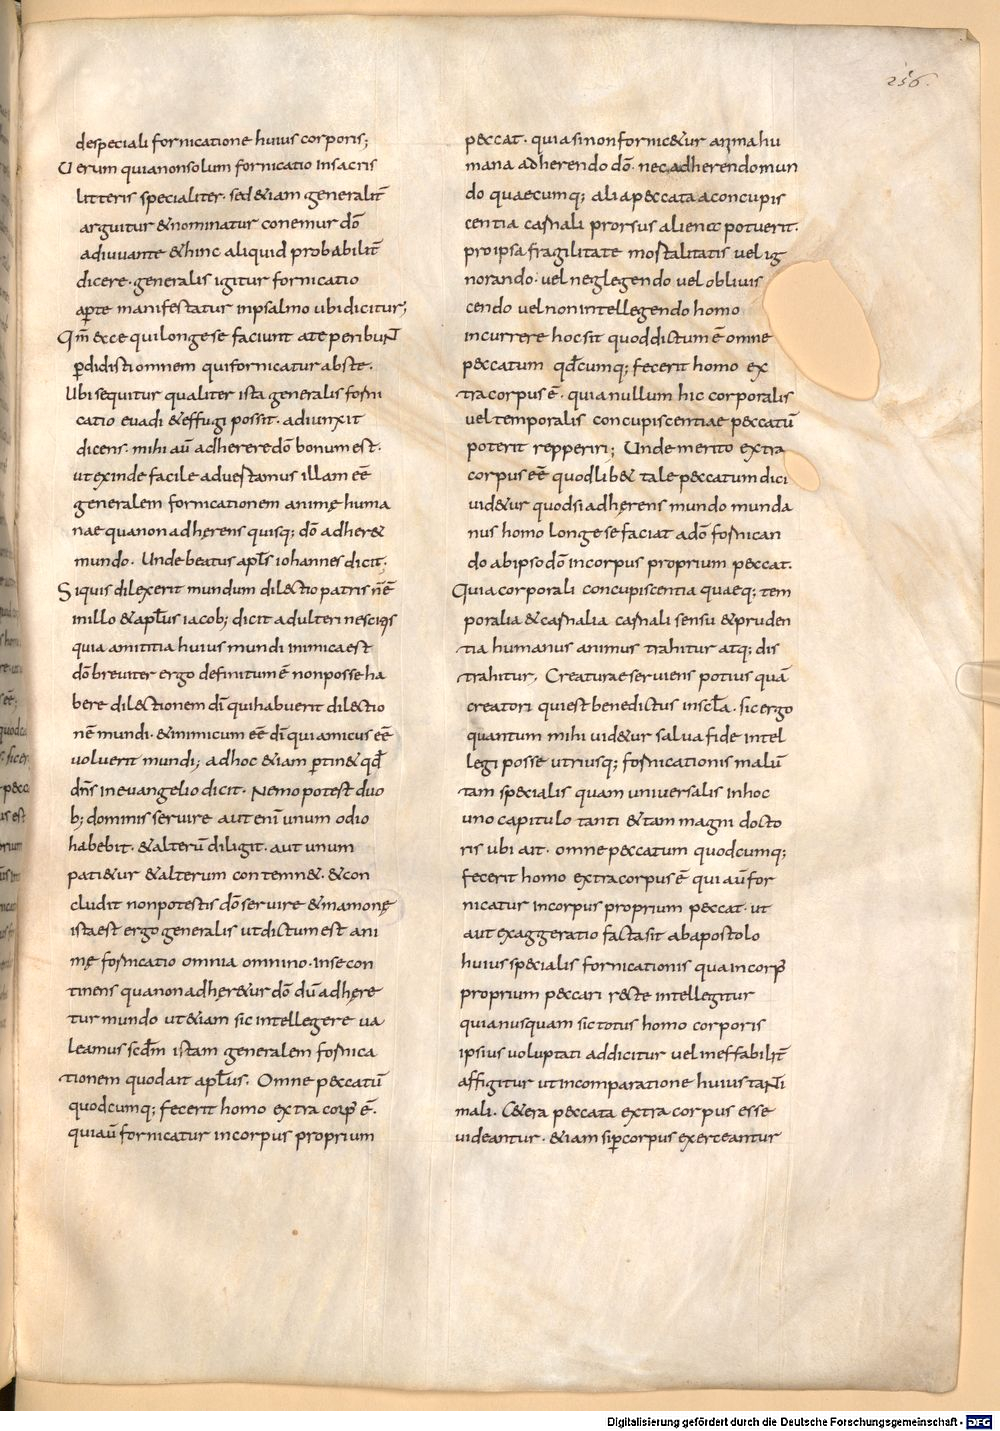 256.
despeciali fornicatione huius corporis;
Uerum quianonsolum fornicatio insacris
litteris specialiter· sed &iam generalit̄
arguitur &nominatur conemur dō
adiuuante &hinc aliquid probabilit̄
dicere· generalis igitur fornicatio
aꝑte manifestatur inpsalmo ubi dicitur;
Qm̄ ecce qui longe se faciunt ate peribunt
ꝑdidisti omnem qui fornicatur abste·
Ubi sequitur qualiter ista generalis forni
catio euadi &effugi possit· adiunxit
dicens· mihi aū adherere dō bonum est·
ut exinde facile aduertamus illam eē
generalem fornicationem animę huma
nae quanon adhęrens quisq; dō adher&
mundo· Unde beatus apłs iohannes dicit;
Siquis dilexerit mundum dilectio patris n̄ ē
inillo &apłus iacob; dicit adulteri nescitis
quia amititia huius mundi inimica est
dō breuiter ergo definitum ē nonposse ha
bere dilectionem dī qui habuerit dilectio
nē mundi· &inimicum eē dī qui amicus eē
uoluerit mundi; adhoc &iam ꝑtin& qđ
dn̄s in euangelio dicit· Nemo potest duo
b; dominis seruire aut enī unum odio
habebit· &alterū diligit· aut unum
pati&ur &alterum contemn&· &con
cludit nonpotestis dō seruire &mamonę
ista est ergo generalis ut dictum est ani
mę fornicatio omnia omnino· inse con
tinens quanon adhęre&ur dō dū adhęre
tur mundo ut &iam sic intellegere ua
leamus scđm istam generalem fornica
tionem quod ait apłus· Omne peccatū
quodcumq; fecerit homo extra corp̄ ē·
qui aū fornicatur incorpus proprium
peccat· quia sinon fornic&ur anima hu
mana adherendo dō· nec adherendo mun
do quaecumq; alia peccata aconcupis
centia carnali prorsus aliena potuerit·
pro ipsa fragilitate mortalitatis uel ig
norando· uel neglegendo uel obliuis
cendo uel non intellegendo homo
incurrere hoc sit quod dictum ē omne
peccatum qđcumq; fecerit homo ex
tra corpus ē· quia nullum hic corporalis
uel temporalis concupiscentiae peccatū
poterit repperiri; Unde merito extra
corpus eē quodlib& tale peccatum dici
uid&ur quodsi adhęrens mundo munda
nus homo longe se faciat adō fornican
do abipso dō incorpus proprium peccat.
Quia corporali concupiscentia quaeq; tem
poralia &carnalia carnali sensu &pruden
tia humanus animus trahitur atq; dis
trahitur, Creaturae seruiens potius quā
creatori qui est benedictus inscła· sic ergo
quantum mihi uid&ur salua fide intel
legi posse utriusq; fornicationis malū
tam specialis quam uniuersalis inhoc
uno capitulo tanti &tam magni docto
ris ubi ait· omne peccatum quodcumq;
fecerit homo extra corpus ē· qui aū for
nicatur incorpus proprium peccat· ut
aut exaggeratio facta sit abapostolo
huius specialis fornicationis qua incorp̄
proprium peccari recte intellegitur
quia nusquam sic totus homo corporis
ipsius uoluptati addicitur uel ineffabilit̄
affigitur ut incomparatione huius tanti
mali· C&era peccata extra corpus esse
uideantur· &iam siꝑ corpus exerceantur
Digitalisierung gefördert durch die Deutsche Forschungsgemeinschaft - DFG